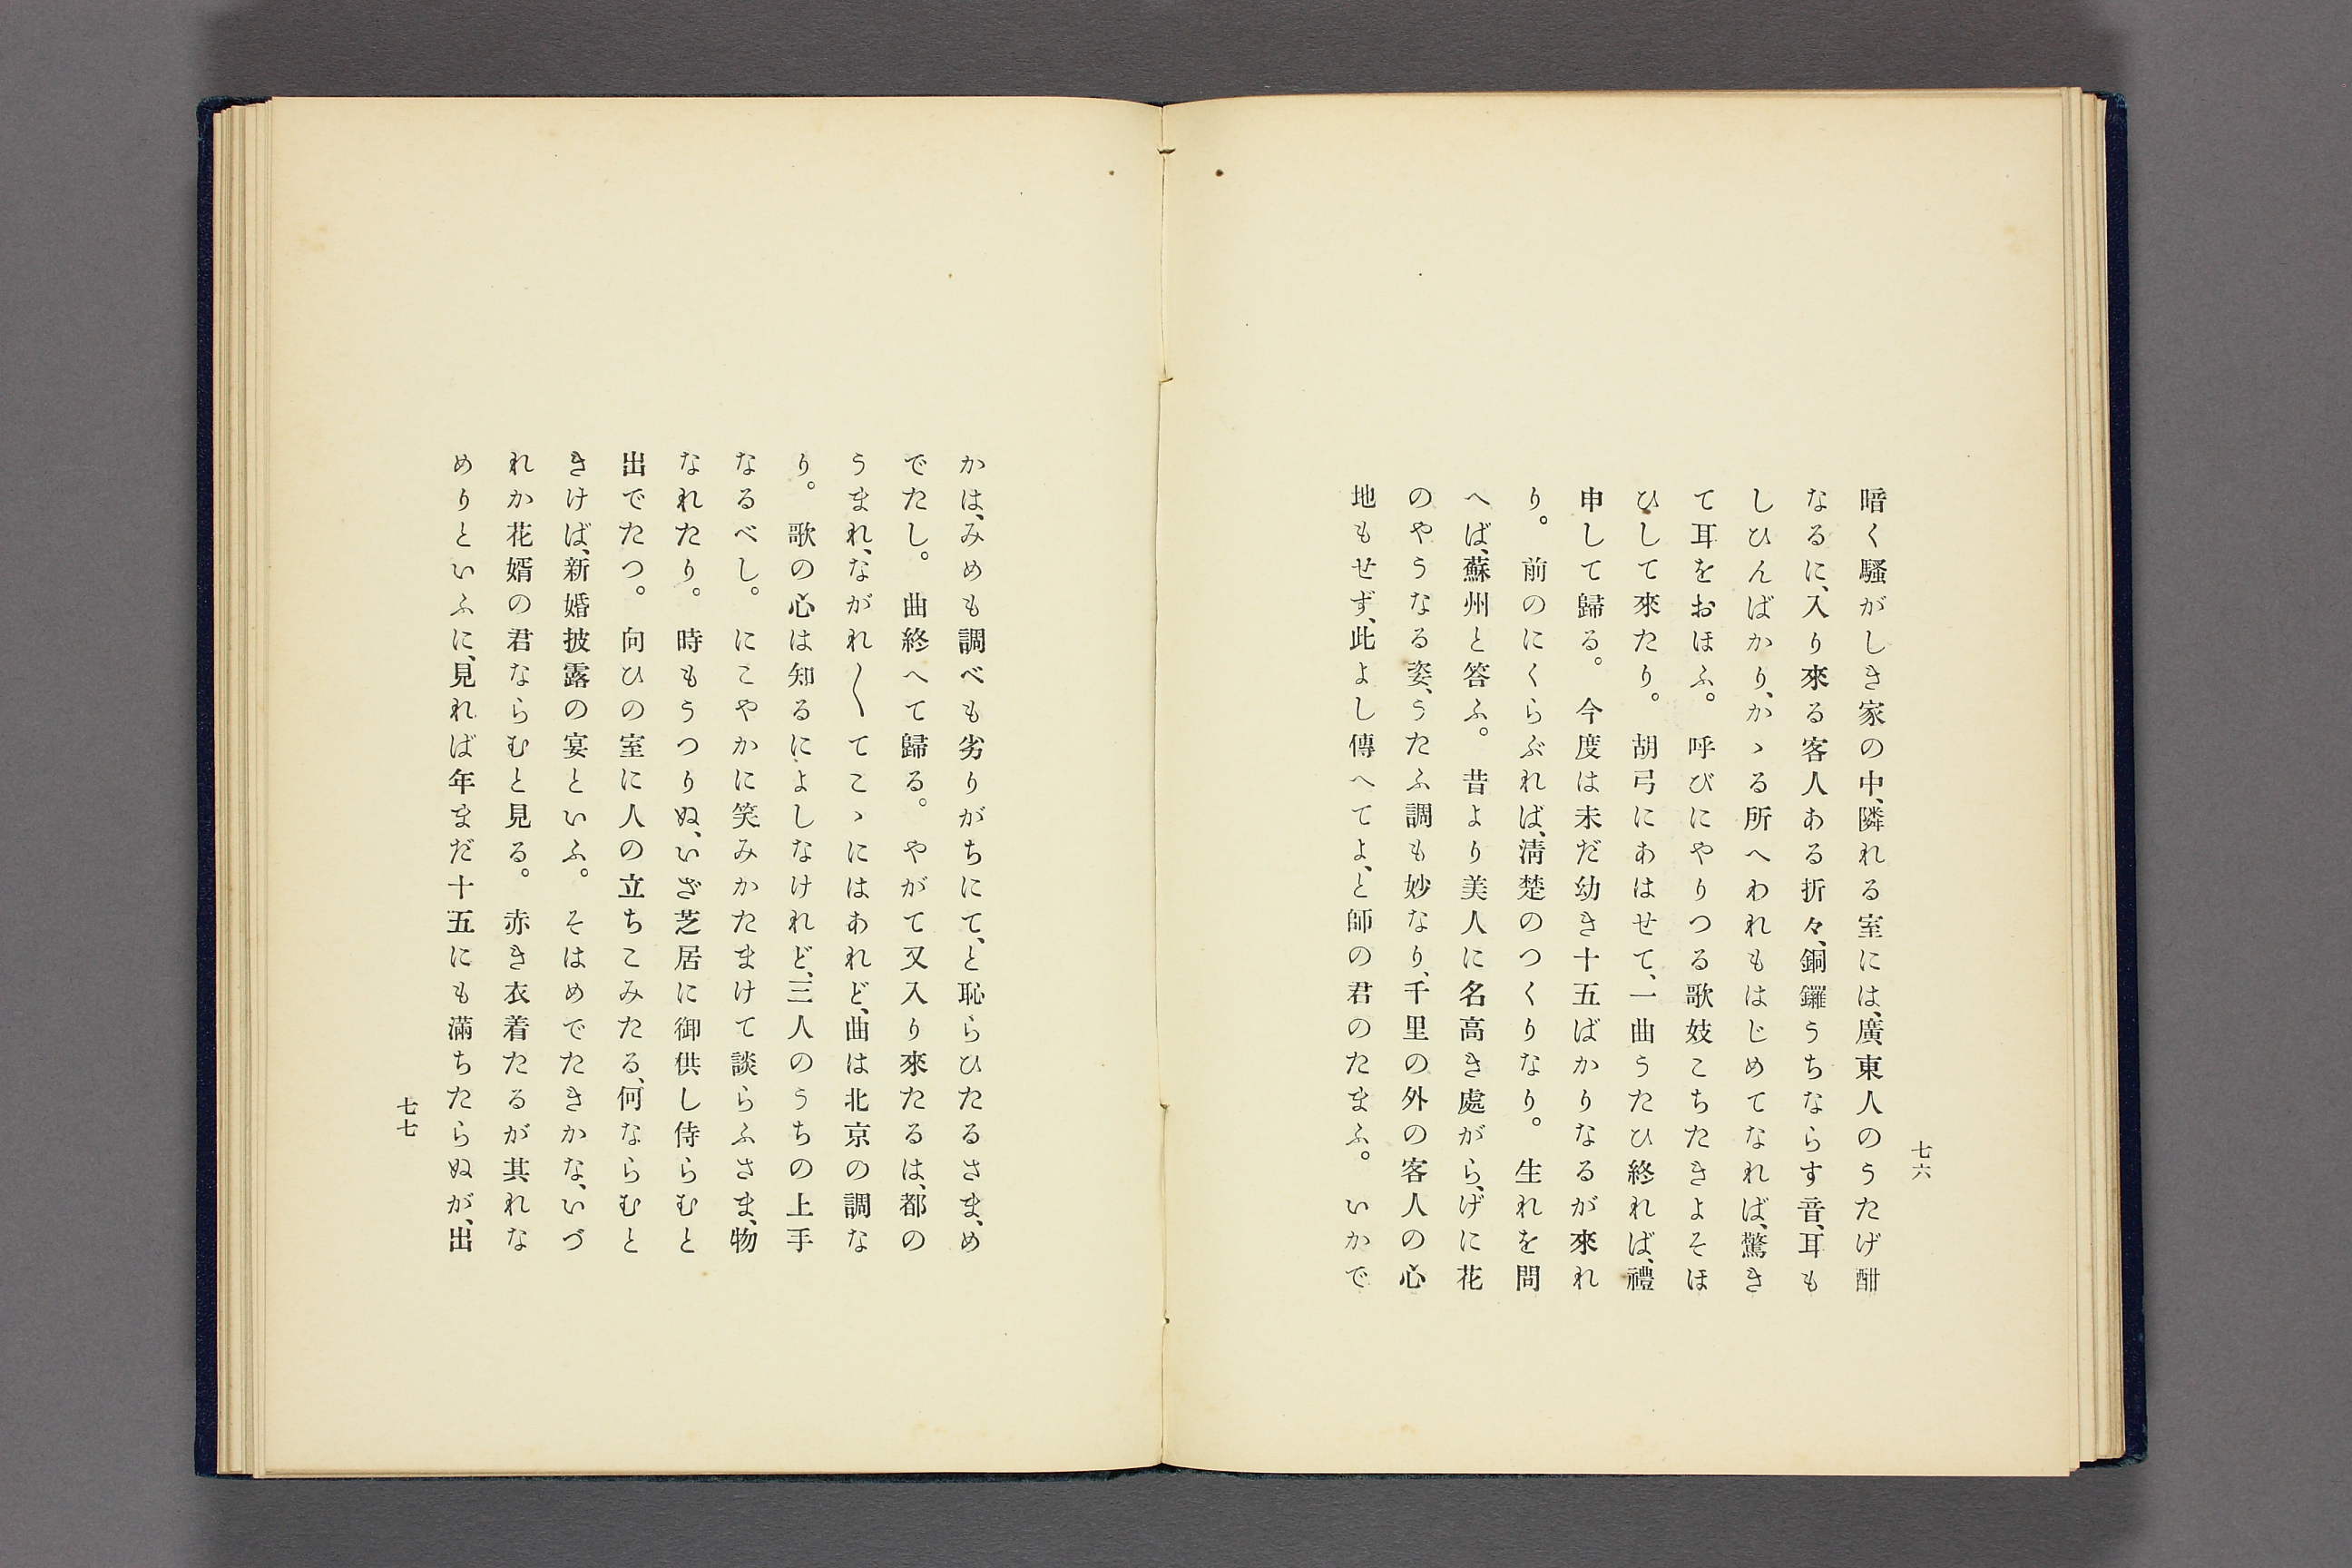 七六
暗く騷がしき家の中、隣れる室には、廣東人のうたげ酣
なるに、入り來る客人ある折々、銅鑼うちならす音、耳も
しひんばかり、かゝる所へわれもはじめてなれば、驚き
て耳をおほふ。呼びにやりつる歌妓こちたきよそほ
ひして來たり。胡弓にあはせて、一曲うたひ終れば、禮
申して歸る。今度は未だ幼き十五ばかりなるが來れ
り。前のにくらぶれば、淸楚のつくりなり。生れを問
へば、蘇州と答ふ。昔より美人に名高き處がら、げに花
のやうなる姿、うたふ調も妙なり、千里の外の客人の心
地もせず、此よし傳へてよ、と師の君のたまふ。いかで
かは、みめも調べも劣りがちにて、と恥らひたるさま、め
でたし。曲終へて歸る。やがて又入り來たるは、都の
うまれ、ながれ〱てこゝにはあれど、曲は北京の調な
り。歌の心は知るによしなけれど、三人のうちの上手
なるべし。にこやかに笑みかたまけて談らふさま、物
なれたり。時もうつりぬ、いざ芝居に御供し侍らむと
出でたつ。向ひの室に人の立ちこみたる、何ならむと
きけば、新婚披露の宴といふ。そはめでたきかな、いづ
れか花婿の君ならむと見る。赤き衣着たるが其れな
めりといふに、見れば年まだ十五にも滿ちたらぬが、出
七七